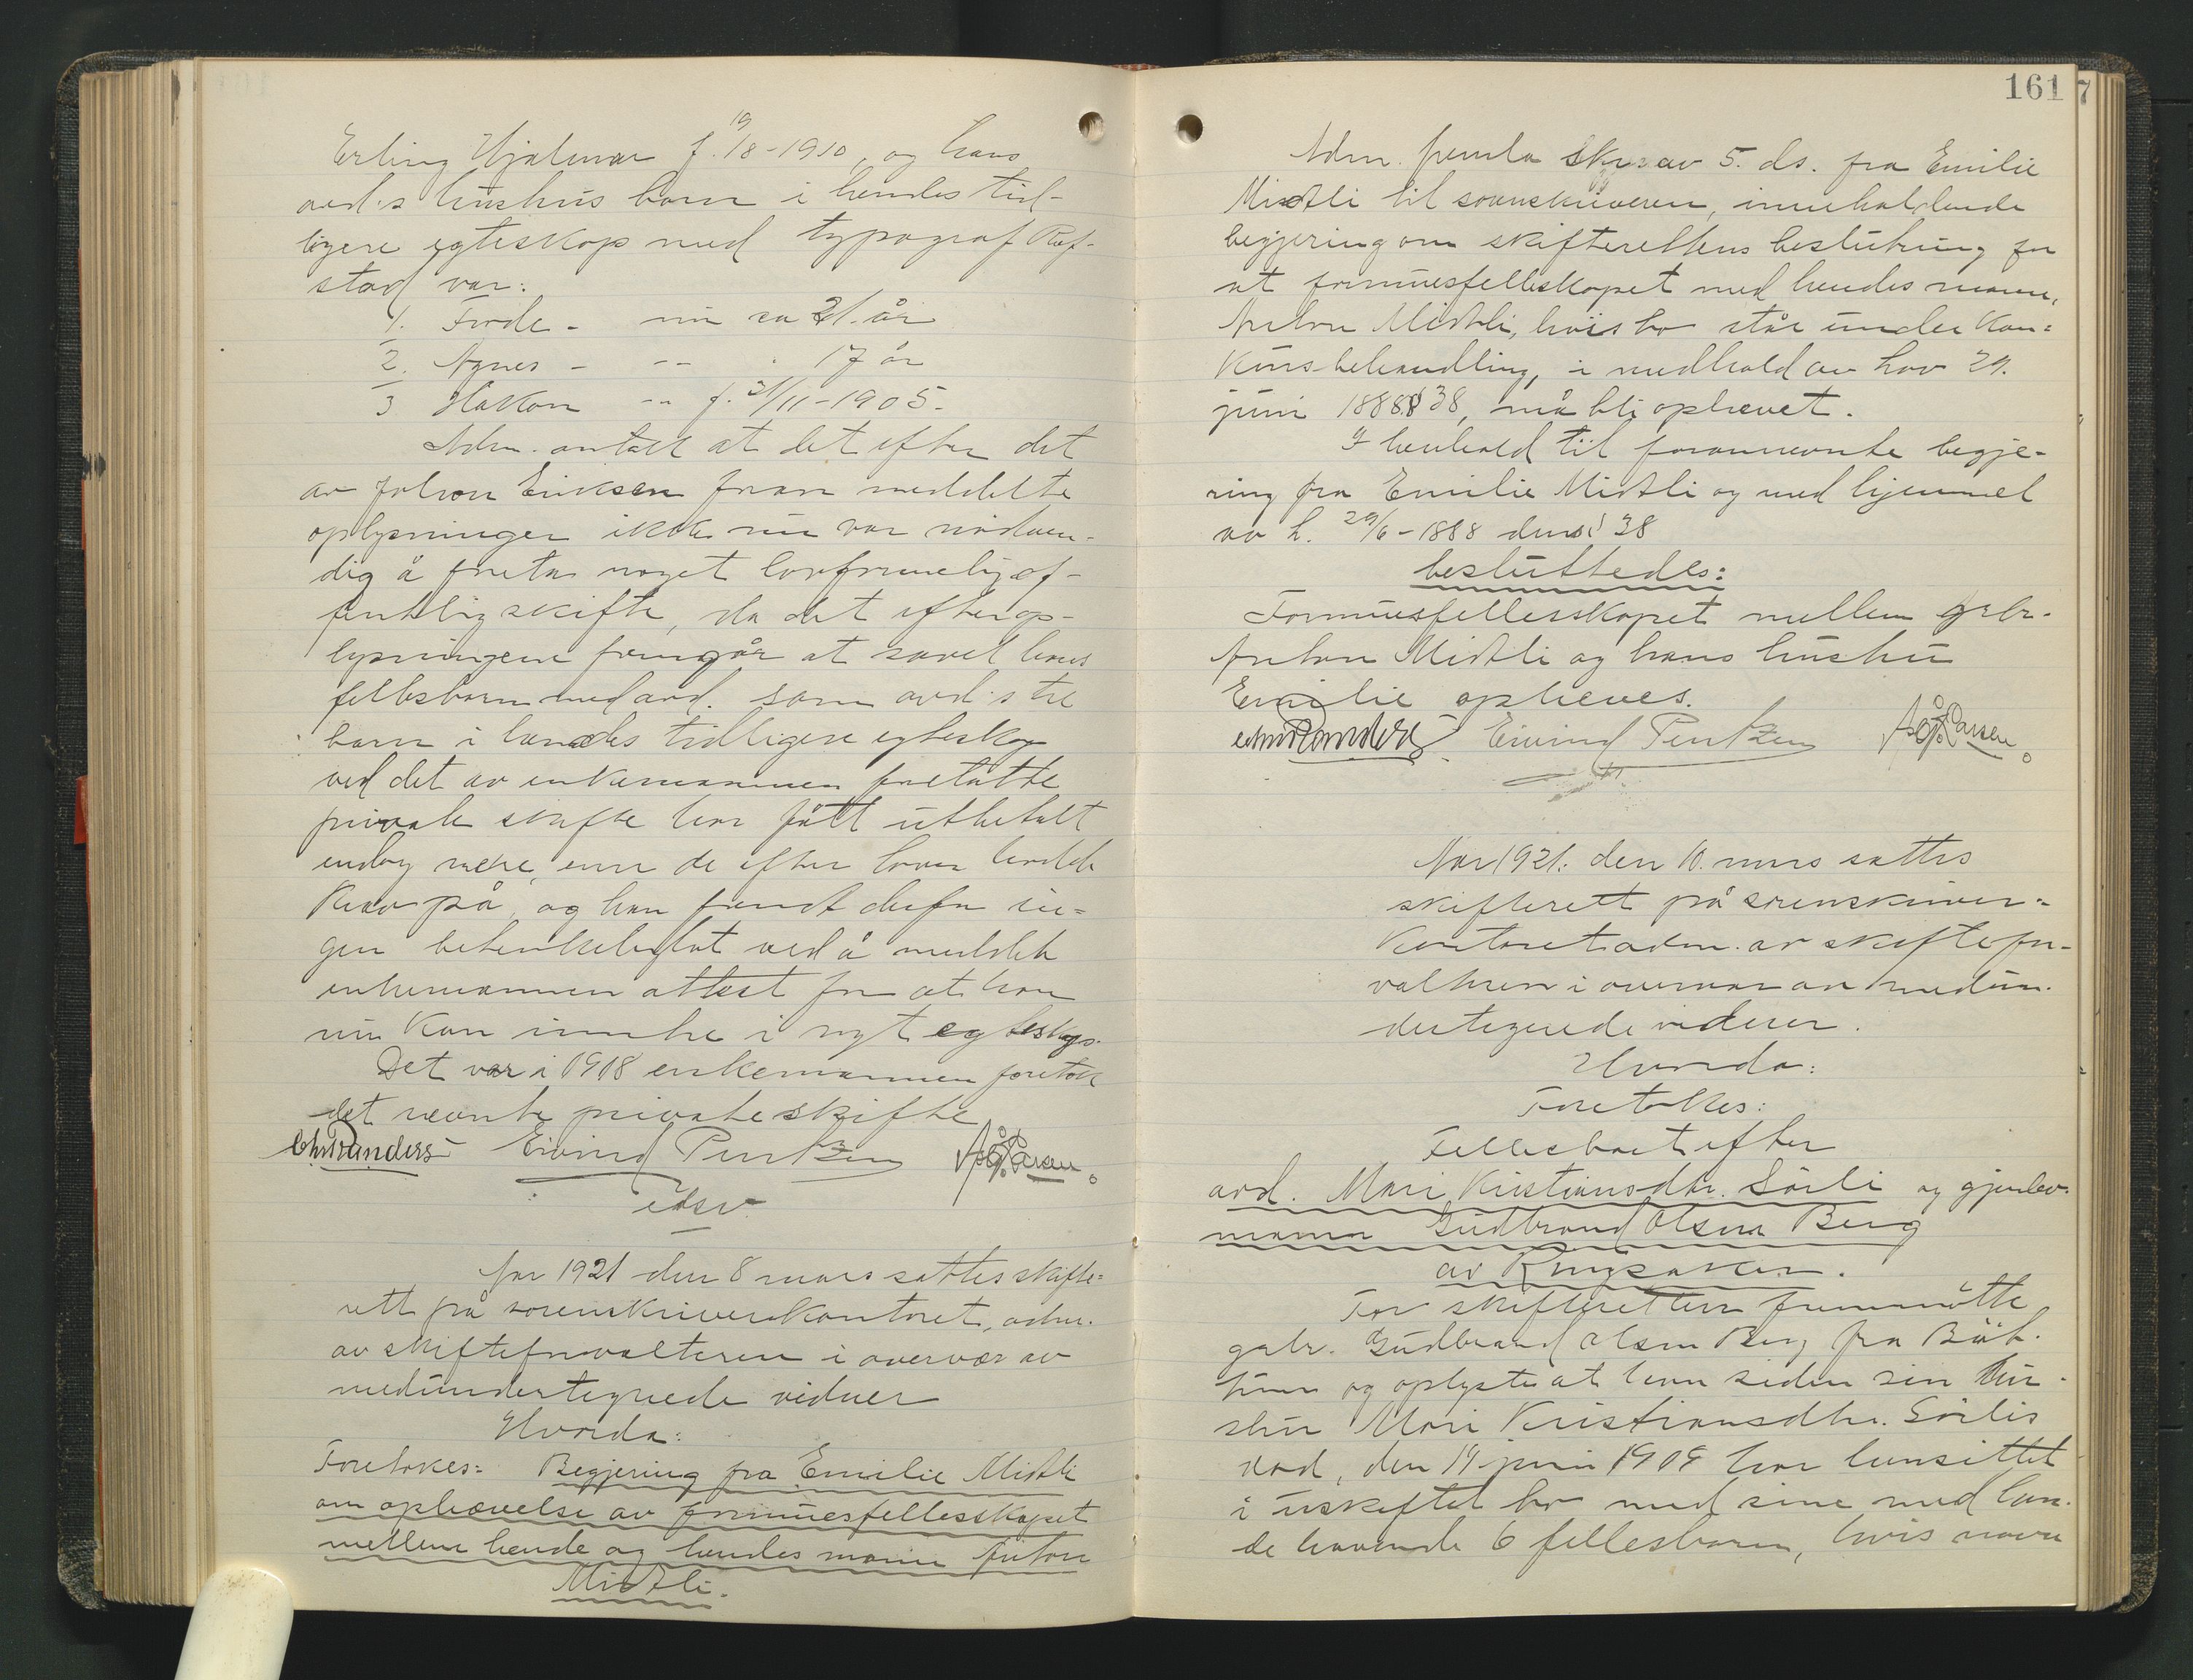 Erling Hjalmar f. 19/8-1910, og hans
avd.s hushus barn i hendes tid-
ligere egteskap med typograf Raf-
stad var:
1. Frode - nu ca 21 år
2. Agnes - -- 17 år
3 Håkon -- f. 21/11-1905.
Adm. antok at det efter det
av Johan Eriksen foran meddelte
oplysninger ikke nu var nødven-
dig å foreta noget lovformelig of-
fentlig skifte, da det efter op-
lysningene fremgår at såvel hans
fellesbarn med avd. som avd.s tre
barn i hendes tidligere egteskap
ved det av enkemannen foretatte
private skifte har fått utbetalt
endog mere, enn de efter loven hadde
krav på, og han fandt derfor in-
gen betenkelighet ved å meddele
enkemannen attest for at han
nu kan inntre i nyt egteskap.
Det var i 1918 enkemannen foretok
det nevnte private skifte
Chr Randers Eivind Pentzen Aag. Larsen
Aar 1921 den 8 mars sattes skifte-
rett på sorenskriverkontoret, adm.
av skifteforvalteren i overvær av
medundertegnede vidner
Hvorda:
Foretokes: Begjering fra Emilie Mistli
om ophævelse av formuesfellesskapet
mellem hende og hendes mann Anton
Mistli.
161
7
Adm. fremla skr. av 5. ds. fra Emilie
Mistli til sorenskriveren, inneholdende
begjering om skifterettens beslutning for
at formuesfellesskapet med hendes mann,
Anton Mistli, hvis bo står under kon-
kursbehandling, i medhold av lov 29.
juni 1888 § 38, må bli ophevet.
I henhold til forannevnte begje-
ring fra Emilie Mistli og med hjemmel
av l. 29/6-1888 dens § 38
besluttedes:
Formuesfellesskapet mellem grbr.
Anton Mistli og hans hustru
Emilie opheves.
Chr Randers Eivind Pentzen Aag. Larsen
Aar 1921. den 10. mars sattes
skifterett på sorenskriver-
kontoret adm. av skiftefor-
valteren i overvær av medun-
dertegnede vidner.
Hvorda:
Foretokes:
Fellesboet efter
avd. Mari Kristiansdtr. Sörli og gjenlev.
mann Gudbrand Olsen Berg
av Ringsaker.
For skifteretten fremmötte
gbr. Gudbrand Olsen Berg fra
og oplyste at han siden sin hu-
stru Mari Kristiansdtr. Sörlis
död, den 14 juni 1909 har hensittet
i uskiftet bo med sine med hen-
de havende 6 fellesbarn, hvis navn